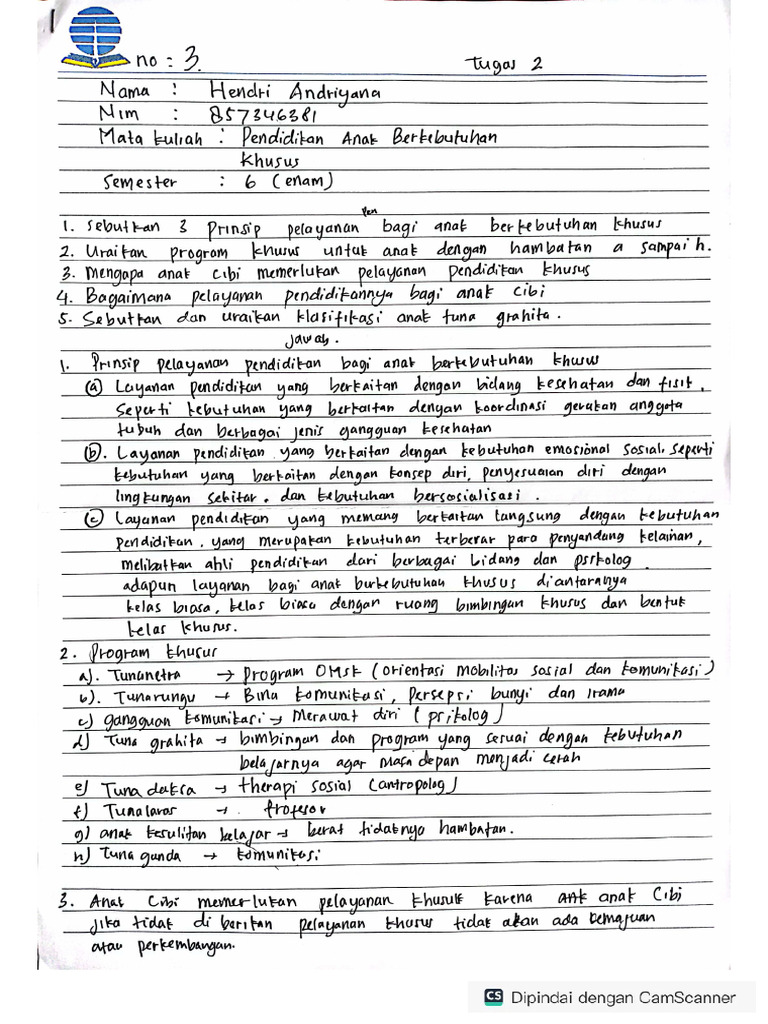 no : 3.
Tugas 2
Nama : Hendri Andriyana
Nim : 857346381
Mata kuliah : Pendidikan Anak Berkebutuhan
Khusus
Semester : 6 (enam)
pen
1. Sebutkan 3 Prinsip pelayanan bagi anak berkebutuhan khusus
2. Uraikan program khusus untuk anak dengan hambatan a sampai h.
3. Mengapa anak cibi memerlukan pelayanan pendidikan khusus
4. Bagaimana pelayanan pendidikannya bagi anak cibi
5. Sebutkan dan uraikan klasifikasi anak tuna grahita.
jawab.
1. Prinsip pelayanan pendidikan bagi anak berkebutuhan khusus
(a) Layanan pendidikan yang berkaitan dengan bidang kesehatan dan fisik,
seperti kebutuhan yang berkaitan dengan koordinasi gerakan anggota
tubuh dan berbagai jenis gangguan kesehatan
(b). Layanan pendidikan yang berkaitan dengan kebutuhan emosional sosial, seperti
kebutuhan yang berkaitan dengan konsep diri, penyesuaian diri dengan
lingkungan sekitar, dan kebutuhan bersosialisasi.
(c) Layanan pendidikan yang memang berkaitan langsung dengan kebutuhan
pendidikan, yang merupakan kebutuhan terberar para penyandang kelainan,
melibatkan ahli pendidikan dari berbagai bidang dan psikolog.
adapun layanan bagi anak berkebutuhan khusus diantaranya
kelas biasa, kelas biasa dengan ruang bimbingan khusus dan bentuk
kelas khusus.
2. Program khusus
a). Tunanetra → Program OMSK (orientasi mobilitas sosial dan komunikasi)
b). Tunarungu → Bina komunikasi, persepsi bunyi dan irama
c) gangguan komunikasi → Merawat diri (psikolog)
d) Tuna grahita → bimbingan dan program yang sesuai dengan kebutuhan
belajarnya agar masa depan menjadi cerah
e) Tuna daksa → therapi sosial (antropolog)
f) Tunalaras → . Profesor
g) anak kesulitan belajar → berat tidaknya hambatan.
h) Tuna ganda → komunikasi
3. Anak Cibi memerlukan pelayanan khusuk karena anak Cibi
jika tidak di berikan pelayanan khusus tidak akan ada kemajuan
atau perkembangan.
CS Dipindai dengan CamScanner